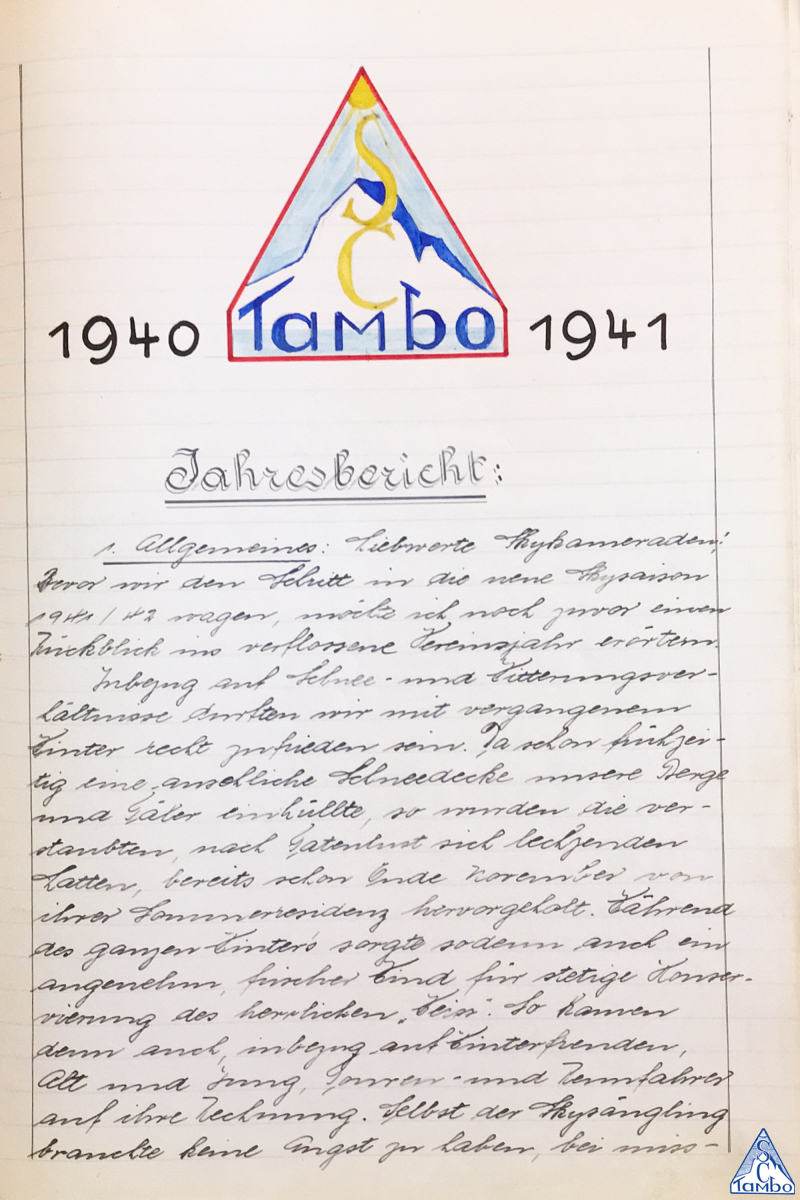 S
C
Tambo
1940
1941
Jahresbericht:
1. Allgemeines: Liebwerte Skykameraden!
Bevor wir den Schritt in die neue Skysaison
1941/42 wagen, möchte ich noch zuvor einen
Rückblick ins verflossene Vereinsjahr erörtern.
Inbezug auf Schnee- und Witterungsver-
hältnisse durften wir mit vergangenem
Winter recht zufrieden sein. Da schon frühzei-
tig eine ansehliche Schneedecke unsere Berge
und Täler einhüllte, so wurden die ver-
staubten, nach Tatenlust sich lechzenden
Latten, bereits schon Ende November von
ihrer Sommerresidenz hervorgeholt. Während
des ganzen Winters sorgte sodenn auch ein
angenehm, frischer Wind für stetige Konser-
vierung des herrlichen „Weiss". So kamen
denn auch, inbezug auf Winterfreuden,
Alt und Jung, Touren- und Rennfahrer
auf ihre Rechnung. Selbst der Skysängling
brauchte keine Angst zu haben, bei miss-
S
C
Tambo